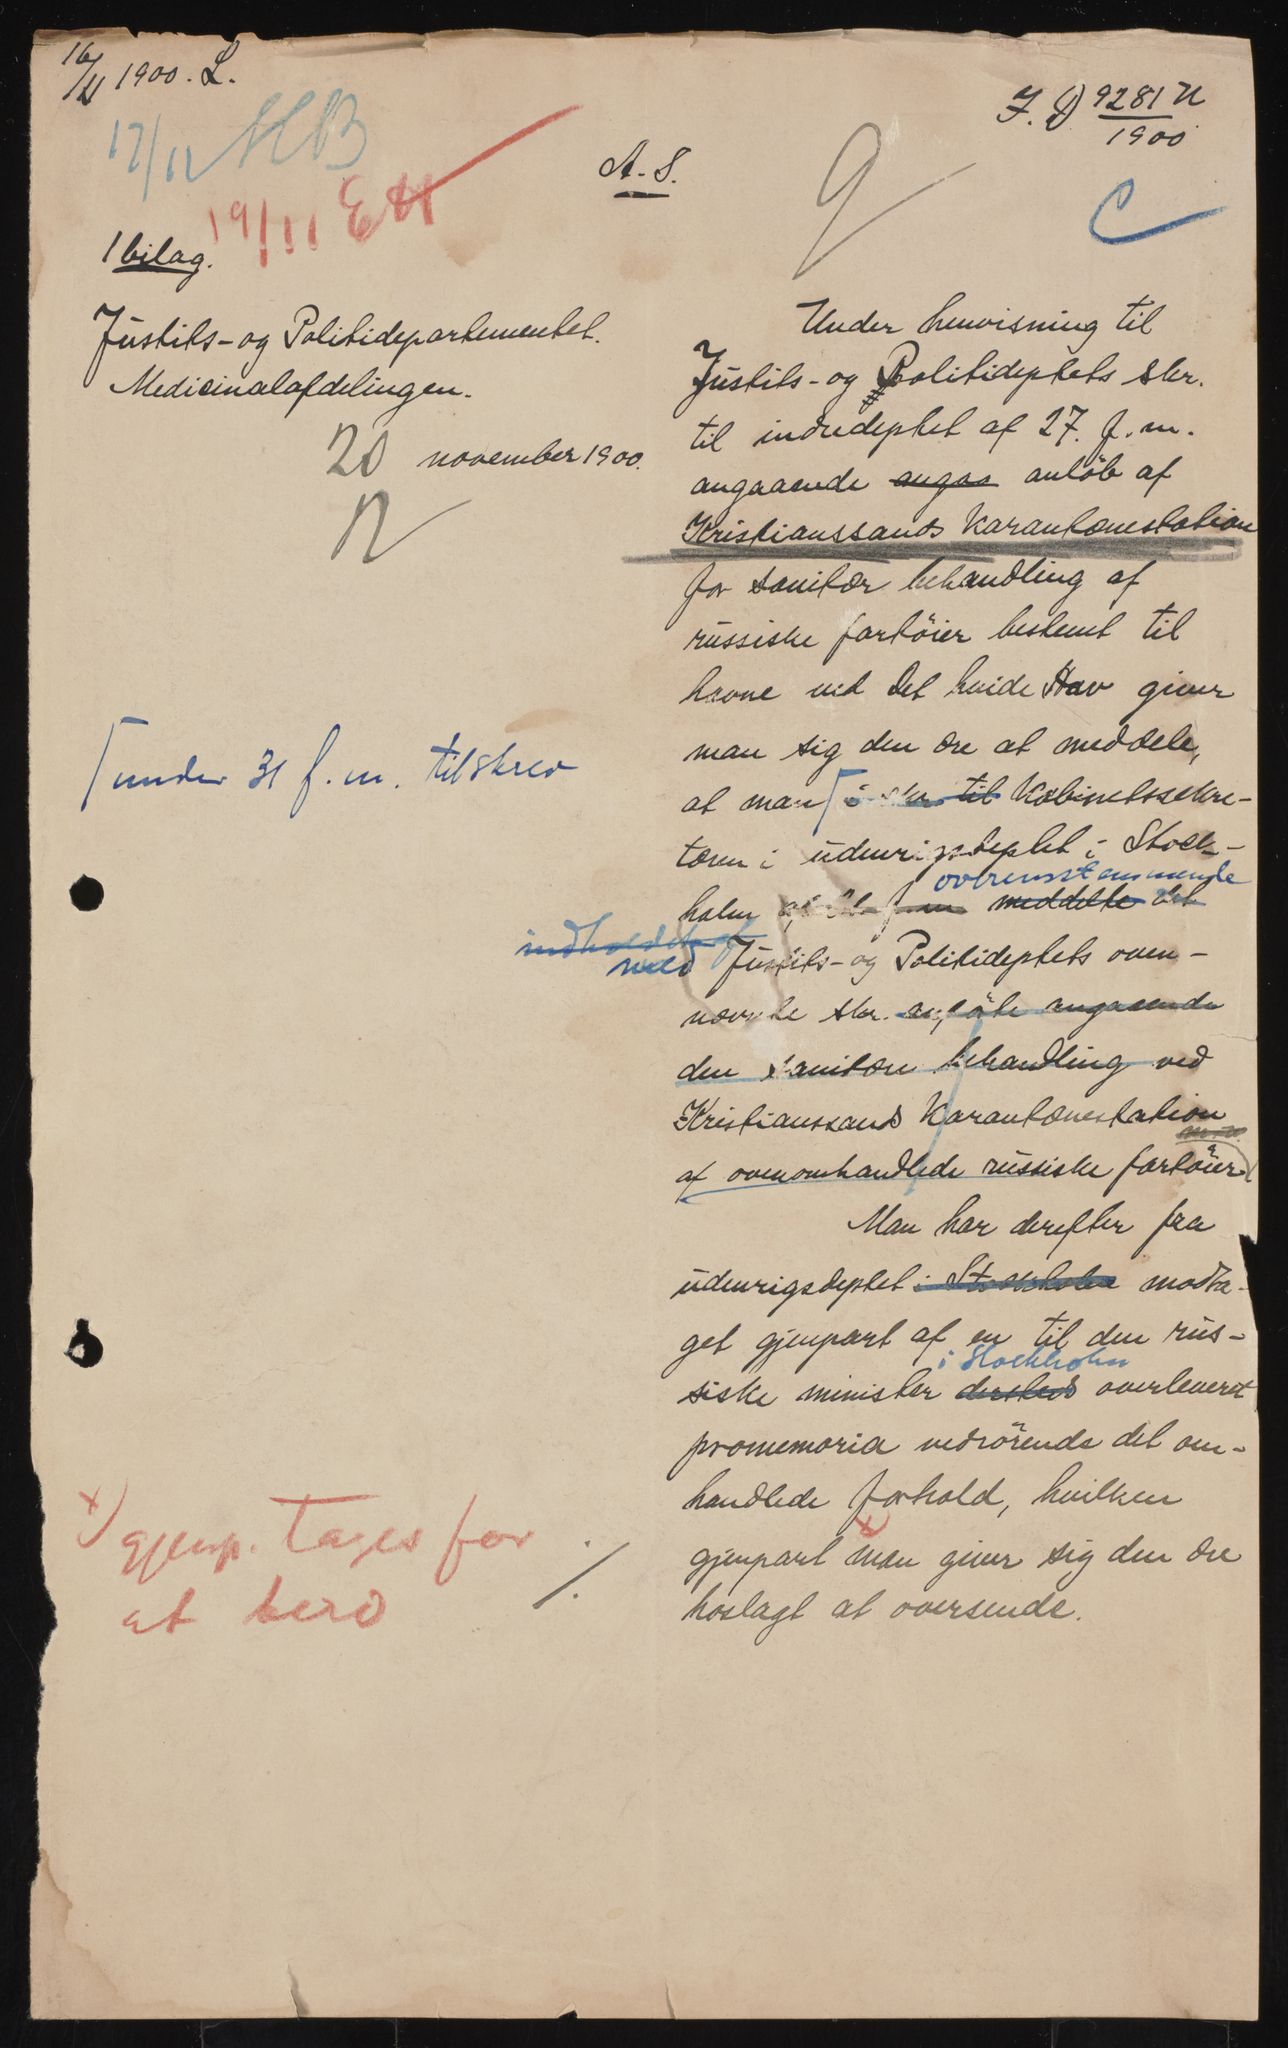 16/11 1900. L.
17/11 HB
19/11 EH
J. D 9281 N
1900
A. S.
C
1 bilag.
Justits- og Politidepartementet.
Medicinalafdelingen.
20 november 1900.
Under henvisning til
Justits- og Politideptets skr.
til indredeptet af 27. f. m.
angaaende angaa anløb af
Kristianssands Karantænestation
for sanitær behandling af
russiske fartöier bestemt til
havne ved det hvide Hav giver
man sig den ære at meddele,
at man [ i skr. til Kabinetssekre-
tæren i udenrigsdeptet i Stock-
[ under 31 f. m. tilskrev
overensstemmende
holm af f. m. meddelte det
indholdet af
med Justits- og Politideptets oven-
nævnte skr. angaaende
den sanitære behandling ved
Kristianssands Karantænestation
af ovenomhandlede russiske fartöier
Man har derefter fra
udenrigsdeptet i Stockholm modta-
get gjenpart af en til den rus-
i Stockholm
siske minister dersteds overleveret
promemoria vedrörende det om-
handlede forhold, hvilken
gjenpart x man giver sig den ære
hoslagt at oversende.
x) gjenp. tages for
at bero
./.